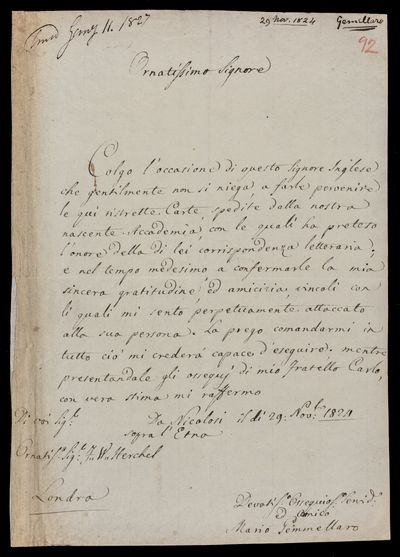 Jany 11. 1827
29 Nov. 1824
Gemellaro
92
Ornatissimo Signore
Colgo l'occasione di questo Signore Inglese
che gentilmente non si niega a farle pervenire
le qui ristrette Carte, spedite dalla nostra
nascente Accademia, con le quali ha preteso
l'onore della di lei corrispondenza letteraria;
e nel tempo medesimo a confermarle la mia
sincera gratitudine ed amicizia, vincoli con
li quali mi sento perpetuamente attaccato
alla sua persona. La prego comandarmi in
tutto ciò mi crederà capace d'eseguire. mentre
presentandale gli ossequj di mio fratello Carlo,
con vera stima mi raffermo
Di voi Sig.r
Da Nicolosi il di 29. Nov. 1824
sopra l'Etna
Ornatis.o Sig.r Herschel
Londra
Devotis.o Ossequios.o
Amico
Mario Gemmellaro